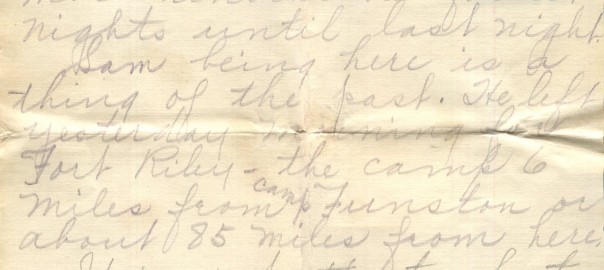 nights until last night.
Sam being here is a
thing of the past. He left
yesterday morning for
Fort Riley - the camp 6
miles from camp Funston or
about 85 miles from here.